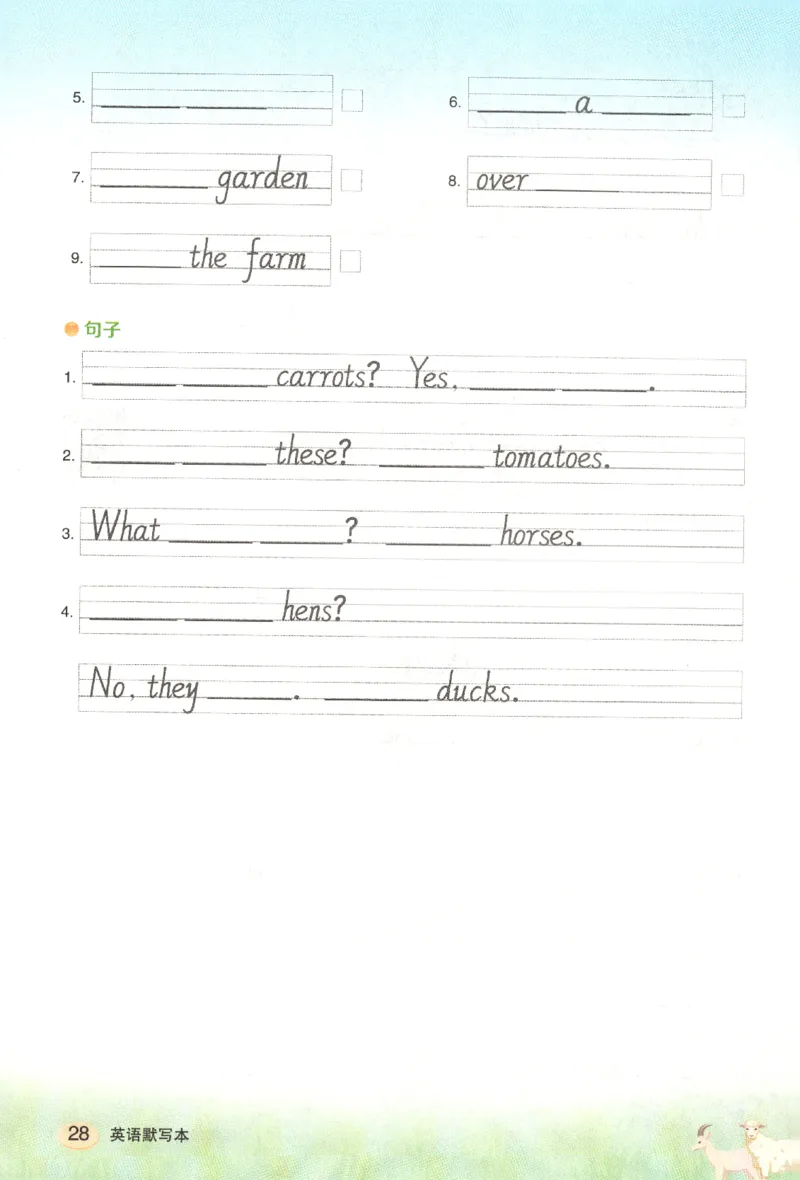 5. ______ ______
6. ______ a ______
7. ______ garden
8. over ______
9. ______ the farm
句子
1. ______ ______ carrots? Yes, ______ ______.
2. ______ ______ these? ______ tomatoes.
3. What ______ ______? ______ horses.
4. ______ ______ hens?
No, they ______. ______ ducks.
28 英语默写本